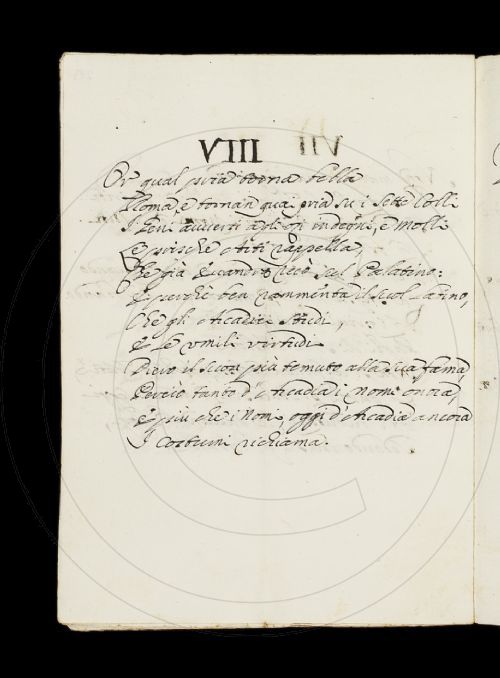 VIII
Or qual pria torna bella
Roma, e tornan qua pria su i Sette Colli
I Geni avverti agli ozi indegni, e molli
E prische Arti rappella,
Che già Evandro recò sul Palatino:
E perchè ben rammenta il suol Latino,
Che gli Arcadici Studi,
E le umili virtudi
Diero il suon più temuto alla sua fama,
Perciò tanto d'Arcadia i nomi onora,
E più che i Nomi, oggi d'Arcadia ancora
I Costumi richiama.